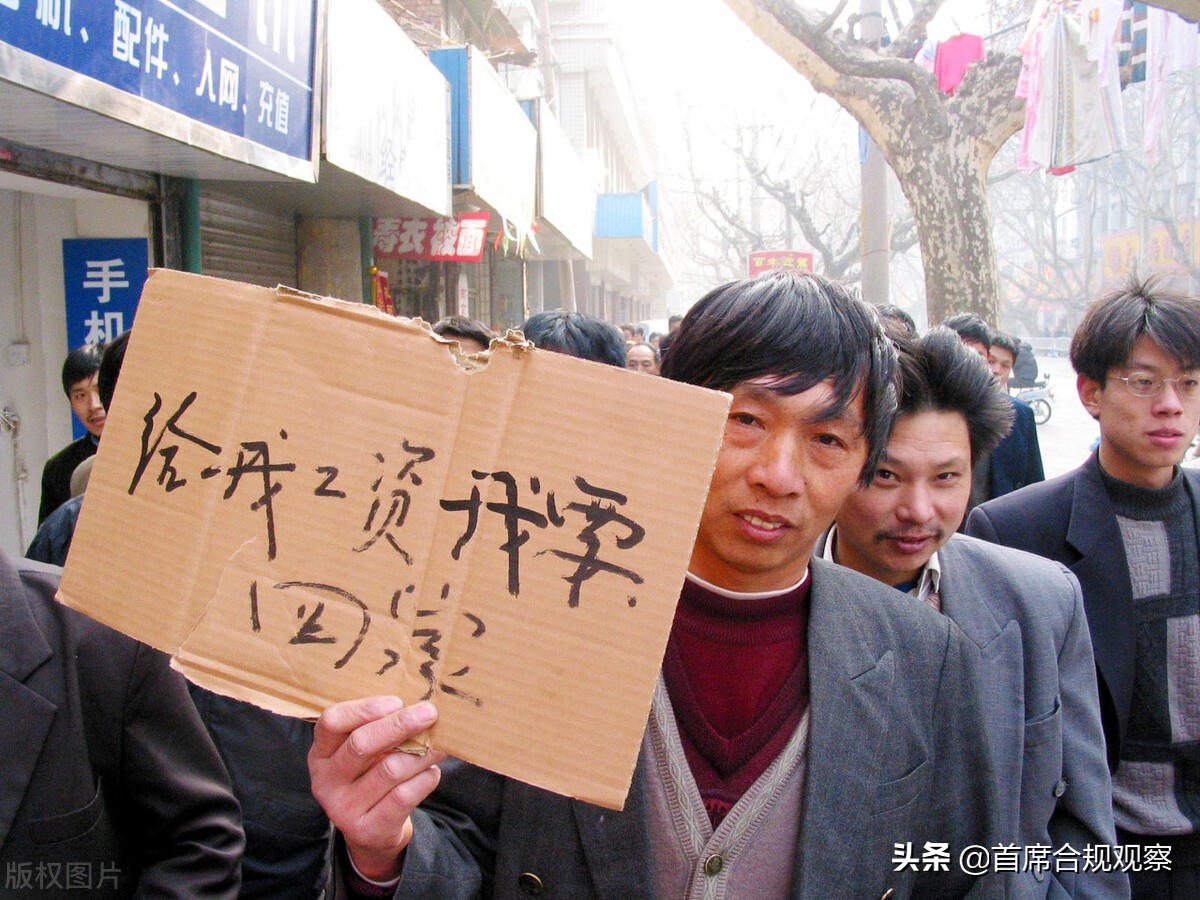 机、配件、入网、充值
手机
寿衣被面
给我工资我要
回家
版权图片
头条 @首席合规观察